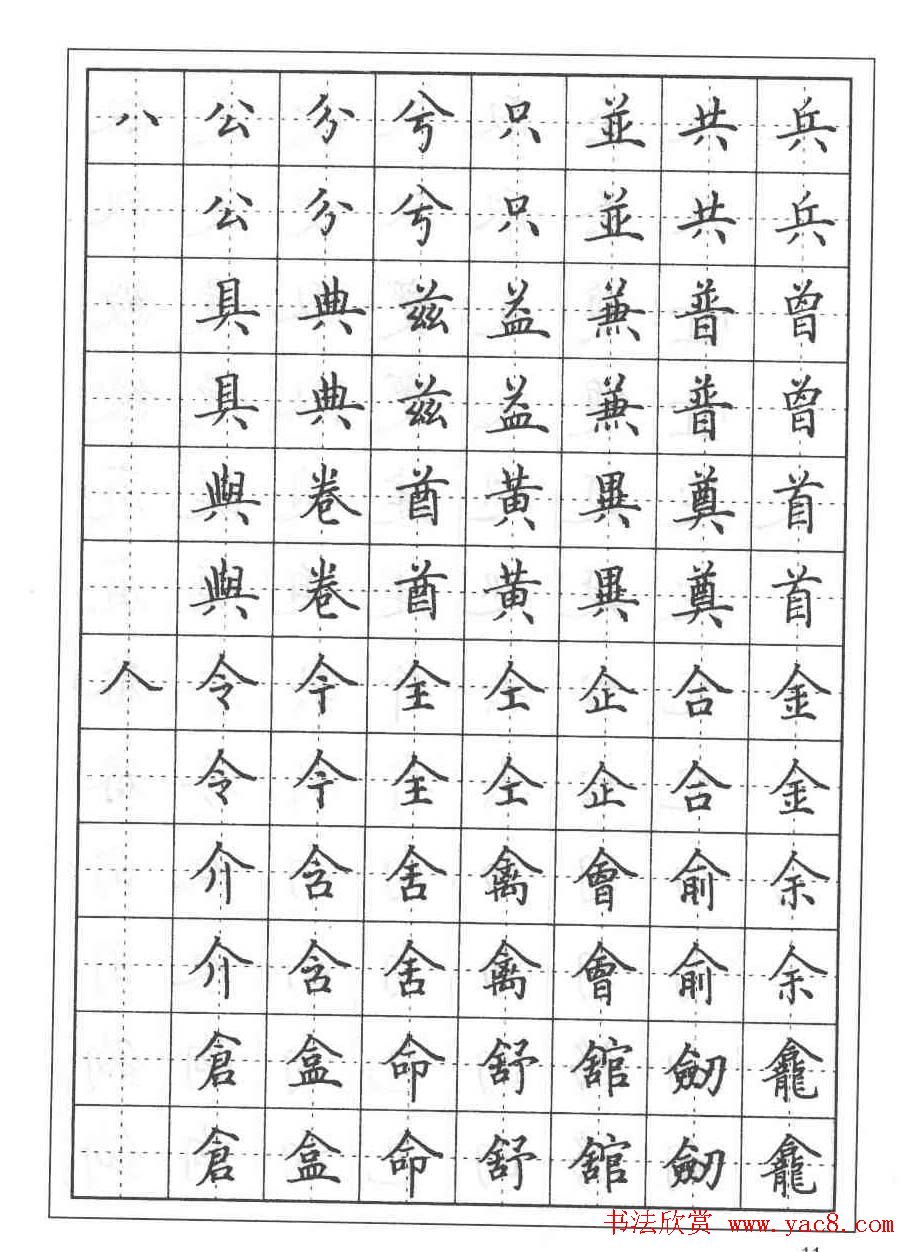 八 公 分 兮 只 並 共 兵
公 分 兮 只 並 共 兵
具 典 茲 益 兼 普 曾
具 典 茲 益 兼 普 曾
與 卷 酋 黃 異 奠 首
與 卷 酋 黃 異 奠 首
人 令 今 全 仝 企 合 金
令 今 全 仝 企 合 金
介 含 舍 禽 會 俞 余
介 含 舍 禽 會 俞 余
倉 盒 命 舒 舘 劒 龕
倉 盒 命 舒 舘 劒 龕
书法欣赏 www.yac8.com